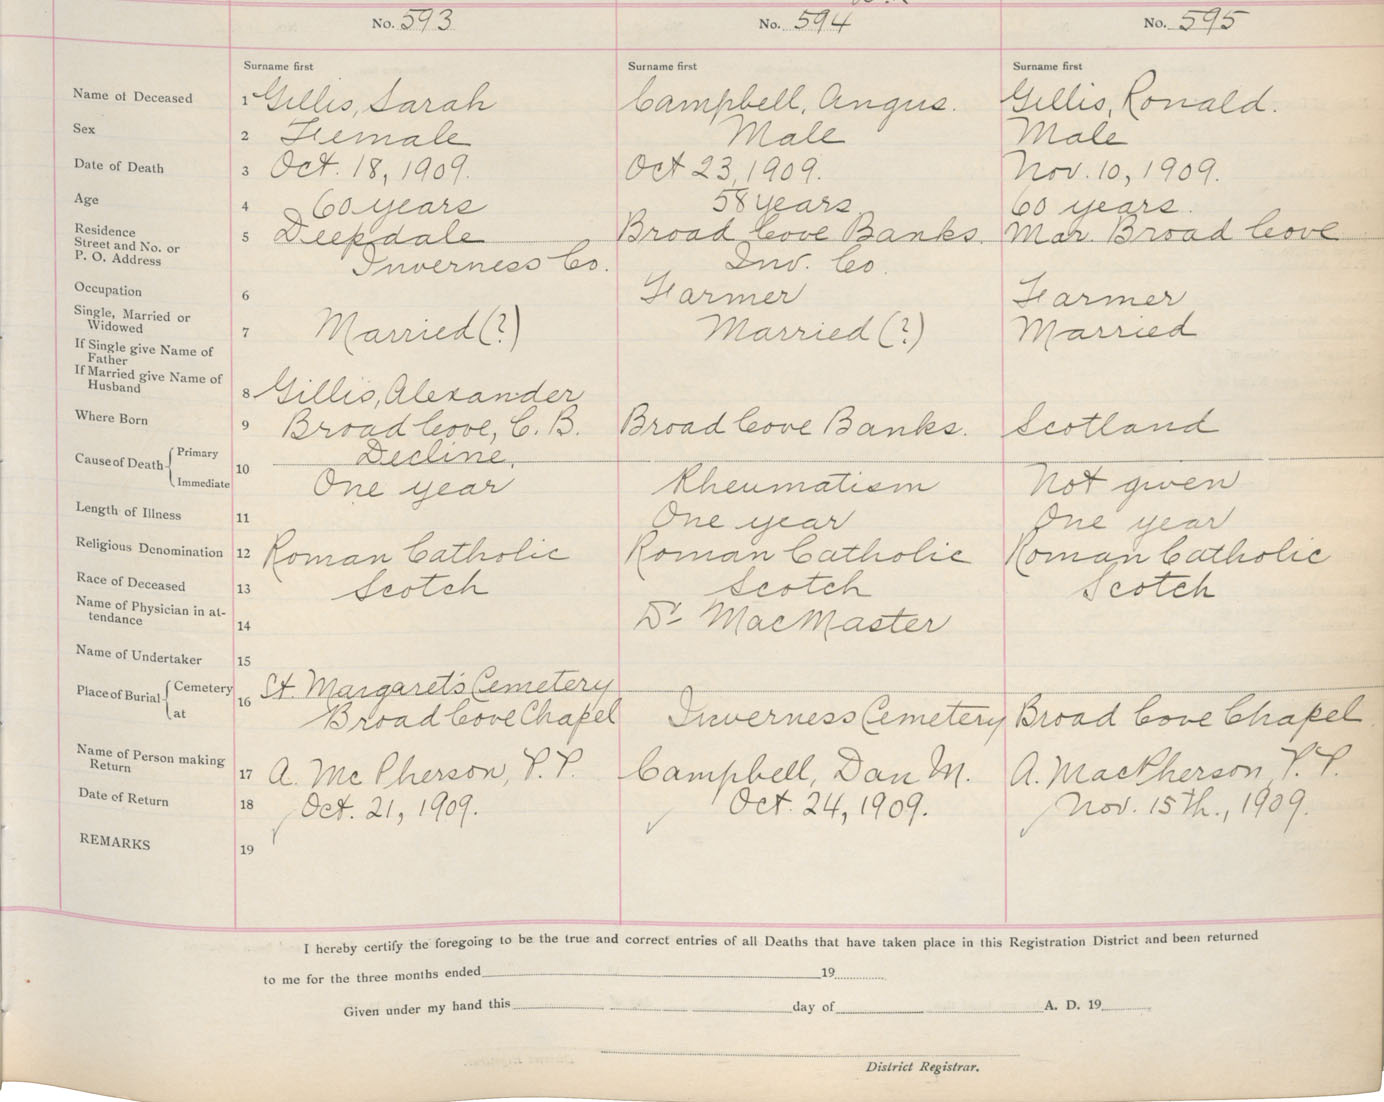 No. 593 No. 594 No. 595
Surname first Surname first Surname first
Name of Deceased 1 Gillis, Sarah Campbell, Angus. Gillis, Ronald.
Sex 2 Female Male Male
Date of Death 3 Oct. 18, 1909. Oct 23, 1909. Nov. 10, 1909.
Age 4 60 years 58 years 60 years.
Residence
Street and No. or 5 Deepdale Broad Cove Banks. Mar. Broad Cove
P. O. Address Inverness Co. Inv. Co.
Occupation 6 Farmer Farmer
Single, Married or
Widowed 7 Married (?) Married (?) Married
If Single give Name of
Father
If Married give Name of
Husband 8 Gillis, Alexander
Where Born 9 Broad Cove, C. B. Broad Cove Banks. Scotland
Cause of Death Primary Decline.
Immediate 10 One year Rheumatism Not given
Length of Illness 11 One year One year
Religious Denomination 12 Roman Catholic Roman Catholic Roman Catholic
Race of Deceased 13 Scotch Scotch Scotch
Name of Physician in at-
tendance 14 Dr MacMaster
Name of Undertaker 15
Place of Burial Cemetery 16 St. Margaret's Cemetery
at Broad Cove Chapel Inverness Cemetery Broad Cove Chapel
Name of Person making
Return 17 A. McPherson, P.P. Campbell, Dan M. A. MacPherson, P.P.
Date of Return 18 Oct. 21, 1909. Oct. 24, 1909. Nov. 15th., 1909.
REMARKS 19
I hereby certify the foregoing to be the true and correct entries of all Deaths that have taken place in this Registration District and been returned
to me for the three months ended 19
Given under my hand this day of A. D. 19
District Registrar.